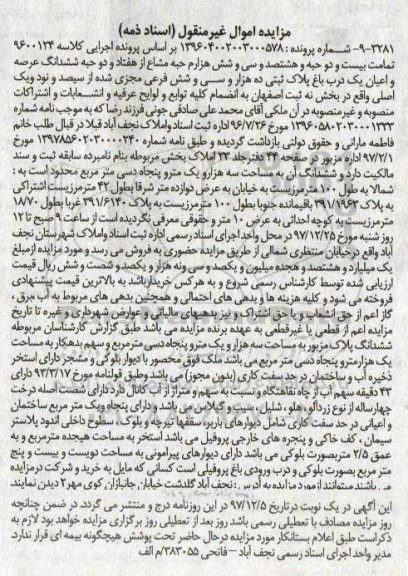 مزایده اموال غیرمنقول (اسناد ذمه)
۹-۳۲۸۱- شماره پرونده : ۱۳۹۶۰۴۰۰۲۰۰۳۰۰۰۵۷۸ بر اساس پرونده اجرایی کلاسه ۹۶۰۰۱۳۴
تمامت بیست و دو حبه و هشتصد و سی و شش هزارم حبه مشاع از هفتاد و دو حبه ششدانگ عرصه
و اعیان یک درب باغ پلاک ثبتی ده هزار و ســی و شش فرعی مجزی شده از سیصد و نود ویک
اصلی واقع در بخش نه ثبت اصفهان به انضمام کلیه توابع و لواحق عرفیه و انشعابات و اشتراکات
منصوبه و غیرمنصوبه در آن ملکی آقای محمد علی صادقی جونی فرزند رضا که به موجب نامه شماره
۱۳۹۶۰۵۸۰۲۰۳۰۰۰۱۳۳۳ مورخ ۹۶/۷/۲۶ اداره ثبت اسناد واملاک نجف آباد قبلا در قبال طلب خانم
فاطمه مارانی و حقوق دولتی بازداشت گردیده و طبق نامه شماره ۱۳۹۷۸۵۶۰۲۰۳۰۰۰۰۲۴۰ مورخ
۹۷/۲/۱ اداره مزبور در صفحه ۳۴ دفترجلد ۲۳ املاک بخش مربوطه بنام نامبرده سابقه ثبت و سند
مالکیت دارد و ششدانگ آن به مساحت سه هزارو یک مترو پنجاه دسی متر مربع محدود است به :
شمالا به طول ۱۰۰ مترمرزیست به خیابان به عرض دوازده متر شرقا بطول ۴۲ مترمرزیست اشتراکی
به پلاک ۳۹۱/۱۹۶۳ باقیمانده جنوبا بطول ۱۰۰ مترمرزیست به پلاک ۳۹۱/۶۱۴۰ غربا بطول ۱۸/۷۰
مترمرزیست به کوچه احداثی به عرض ۱۰ متر و حقوقی معرفی نگردیده است از ساعت ۹ صبح تا ۱۲
روز شنبه مورخ ۹۷/۱۲/۲۵ در محل واحد اجرای اسناد رسمی اداره ثبت اسناد واملاک شهرستان نجف
آباد واقع درخیابان منتظری شمالی از طریق مزایده حضوری به فروش می رسد و مورد مزایده ازمبلغ
یک میلیارد و هشتصد و هجده میلیون و یکصد و سی ونه هزار و یکصد و شصت و شش ریال قیمت
ارزیابی شده توسط کارشناس رسمی شروع و به هرکس خریدارباشد به بالاترین قیمت پیشنهادی
فروخته می شود و کلیه هزینه ها و بدهی های احتمالی و همچنین بدهی های مربوط به آب برق ،
گاز اعم از حق انشعاب و یا حق اشتراک و نیز بدهیهای مالیاتی و عوارض شهرداری و غیره تا تاریخ
مزایده اعم از قطعی یا غیرقطعی به عهده برنده مزایده می باشد طبق گزارش کارشناسان مربوطه
ششدانگ پلاک مزبور به مساحت سه هزار و یک مترو پنجاه دسی مترمربع و سهم بدهکار به مساحت
یک هزارمترو پنجاه دسی متر مربع می باشد ملک فوق محصور با دیوار بلوکی و مشجر دارای استخر
ذخیره آب و ساختمان در حد سفت کاری (بدون مجوز) می باشد وطبق قولنامه مورخ ۹۳/۲/۱۷ دارای
۴۳ دقیقه سهم آب از چاه نقاهتگاه و نسبت به سهم و متراژ از آب کانال دارد دارای شصت اصله درخت
چهارساله از نوع زردآلو ،هلو ، شلیل ، سیب و گیلاس می باشد و دارای پنجاه ویک متر مربع ساختمان
و اعیانی در حد سفت کاری شامل دیوارهای باربر، سقفها تیرچه و بلوک، سطوح داخلی اندود پلاستر
سیمان ، کف خاکی و پنجره های خارجی پروفیل می باشد استخر به مساحت هیجده مترمربع و به
عمق ۲/۵ متربصورت بلوکی می باشد دارای دیوارهای پیرامونی به مساحت دویست و بیست و پنج
متر مربع بصورت بلوکی و درب ورودی باغ پروفیلی است کسانی که مایل به خرید و شرکت درمزایده
می باشند میتوانند ازمورد مزایده به آدرس : نجف آباد گلدشت خیابان جانبازان کوی مهر۲ دیدن نمایند.
این آگهی در یک نوبت درتاریخ ۹۷/۱۲/۵ در این روزنامه درج و منتشر می گردد. در ضمن چنانچه
روز مزایده مصادف با تعطیلی رسمی باشد روز بعد از تعطیلی روز برگزاری مزایده خواهد بود لازم به
ذکراست طبق اعلام بستانکار مورد مزایده درحال حاضر تحت پوشش هیچگونه بیمه ای قرار ندارد.
مدیر واحد اجرای اسناد رسمی نجف آباد – فاتحی ۳۸۳۰۵۵/م الف